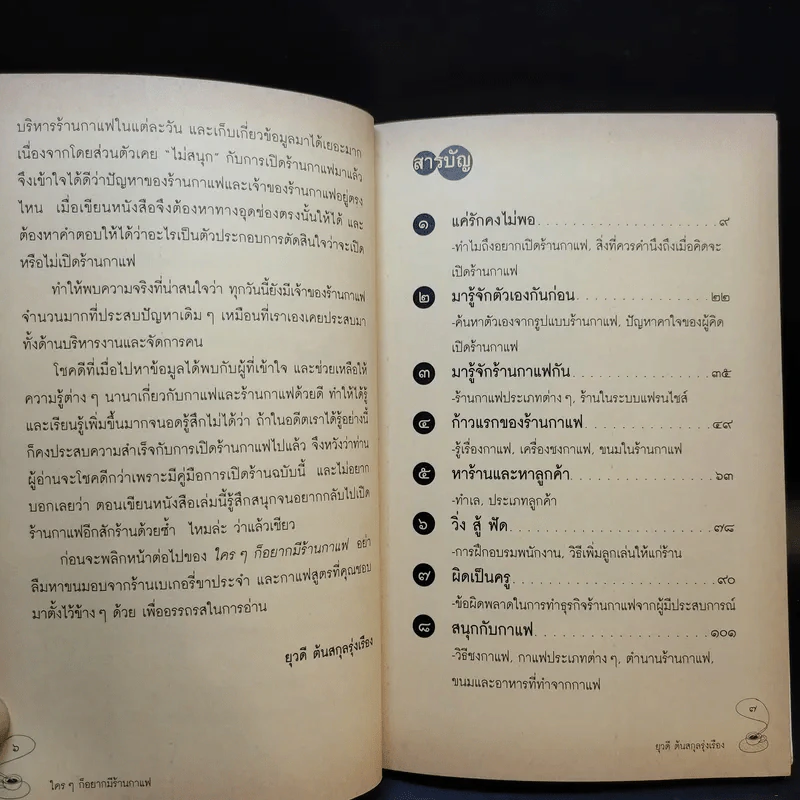 บริหารร้านกาแฟในแต่ละวัน และเก็บเกี่ยวข้อมูลมาได้เยอะมาก
เนื่องจากโดยส่วนตัวเคย “ไม่สนุก” กับการเปิดร้านกาแฟมาแล้ว
จึงเข้าใจได้ดีว่าปัญหาของร้านกาแฟและเจ้าของร้านกาแฟอยู่ตรง
ไหน เมื่อเขียนหนังสือจึงต้องหาทางอุดช่องตรงนั้นให้ได้ และ
ต้องหาคำตอบให้ได้ว่าอะไรเป็นตัวประกอบการตัดสินใจว่าจะเปิด
หรือไม่เปิดร้านกาแฟ
ทำให้พบความจริงที่น่าสนใจว่า ทุกวันนี้ยังมีเจ้าของร้านกาแฟ
จำนวนมากที่ประสบปัญหาเดิม ๆ เหมือนที่เราเองเคยประสบมา
ทั้งด้านบริหารงานและจัดการคน
โชคดีที่เมื่อไปหาข้อมูลได้พบกับผู้ที่เข้าใจ และช่วยเหลือให้
ความรู้ต่าง ๆ นานาเกี่ยวกับกาแฟและร้านกาแฟด้วยดี ทำให้ได้รู้
และเรียนรู้เพิ่มขึ้นมากจนอดรู้สึกไม่ได้ว่า ถ้าในอดีตเราได้รู้อย่างนี้
ก็คงประสบความสำเร็จกับการเปิดร้านกาแฟไปแล้ว จึงหวังว่าท่าน
ผู้อ่านจะโชคดีกว่าเพราะมีคู่มือการเปิดร้านฉบับนี้ และไม่อยาก
บอกเลยว่า ตอนเขียนหนังสือเล่มนี้รู้สึกสนุกจนอยากกลับไปเปิด
ร้านกาแฟอีกสักร้านด้วยซ้ำ ไหมล่ะ ว่าแล้วเชียว
ก่อนจะพลิกหน้าต่อไปของ ใคร ๆ ก็อยากมีร้านกาแฟ อย่า
ลืมหาขนมอบจากร้านเบเกอรี่ขาประจำ และกาแฟสูตรที่คุณชอบ
มาตั้งไว้ข้าง ๆ ด้วย เพื่ออรรถรสในการอ่าน
ยุวดี ต้นสกุลรุ่งเรือง
๖
ใคร ๆ ก็อยากมีร้านกาแฟ
สารบัญ
๑ แค่รักคงไม่พอ ๙
-ทำไมถึงอยากเปิดร้านกาแฟ, สิ่งที่ควรคำนึงถึงเมื่อคิดจะ
เปิดร้านกาแฟ
๒ มารู้จักตัวเองกันก่อน ๒๒
-ค้นหาตัวเองจากรูปแบบร้านกาแฟ, ปัญหาคาใจของผู้คิด
เปิดร้านกาแฟ
๓ มารู้จักร้านกาแฟกัน ๓๕
-ร้านกาแฟประเภทต่าง ๆ, ร้านในระบบแฟรนไชส์
๔ ก้าวแรกของร้านกาแฟ ๔๙
-รู้เรื่องกาแฟ, เครื่องชงกาแฟ, ขนมในร้านกาแฟ
๕ หาร้านและหาลูกค้า ๖๓
-ทำเล, ประเภทลูกค้า
๖ วิ่ง สู้ ฟัด ๗๘
-การฝึกอบรมพนักงาน, วิธีเพิ่มลูกเล่นให้แก่ร้าน
๗ ผิดเป็นครู ๙๐
-ข้อผิดพลาดในการทำธุรกิจร้านกาแฟจากผู้มีประสบการณ์
๘ สนุกกับกาแฟ ๑๐๑
-วิธีชงกาแฟ, กาแฟประเภทต่าง ๆ, ตำนานร้านกาแฟ,
ขนมและอาหารที่ทำจากกาแฟ
๗
ยุวดี ต้นสกุลรุ่งเรือง